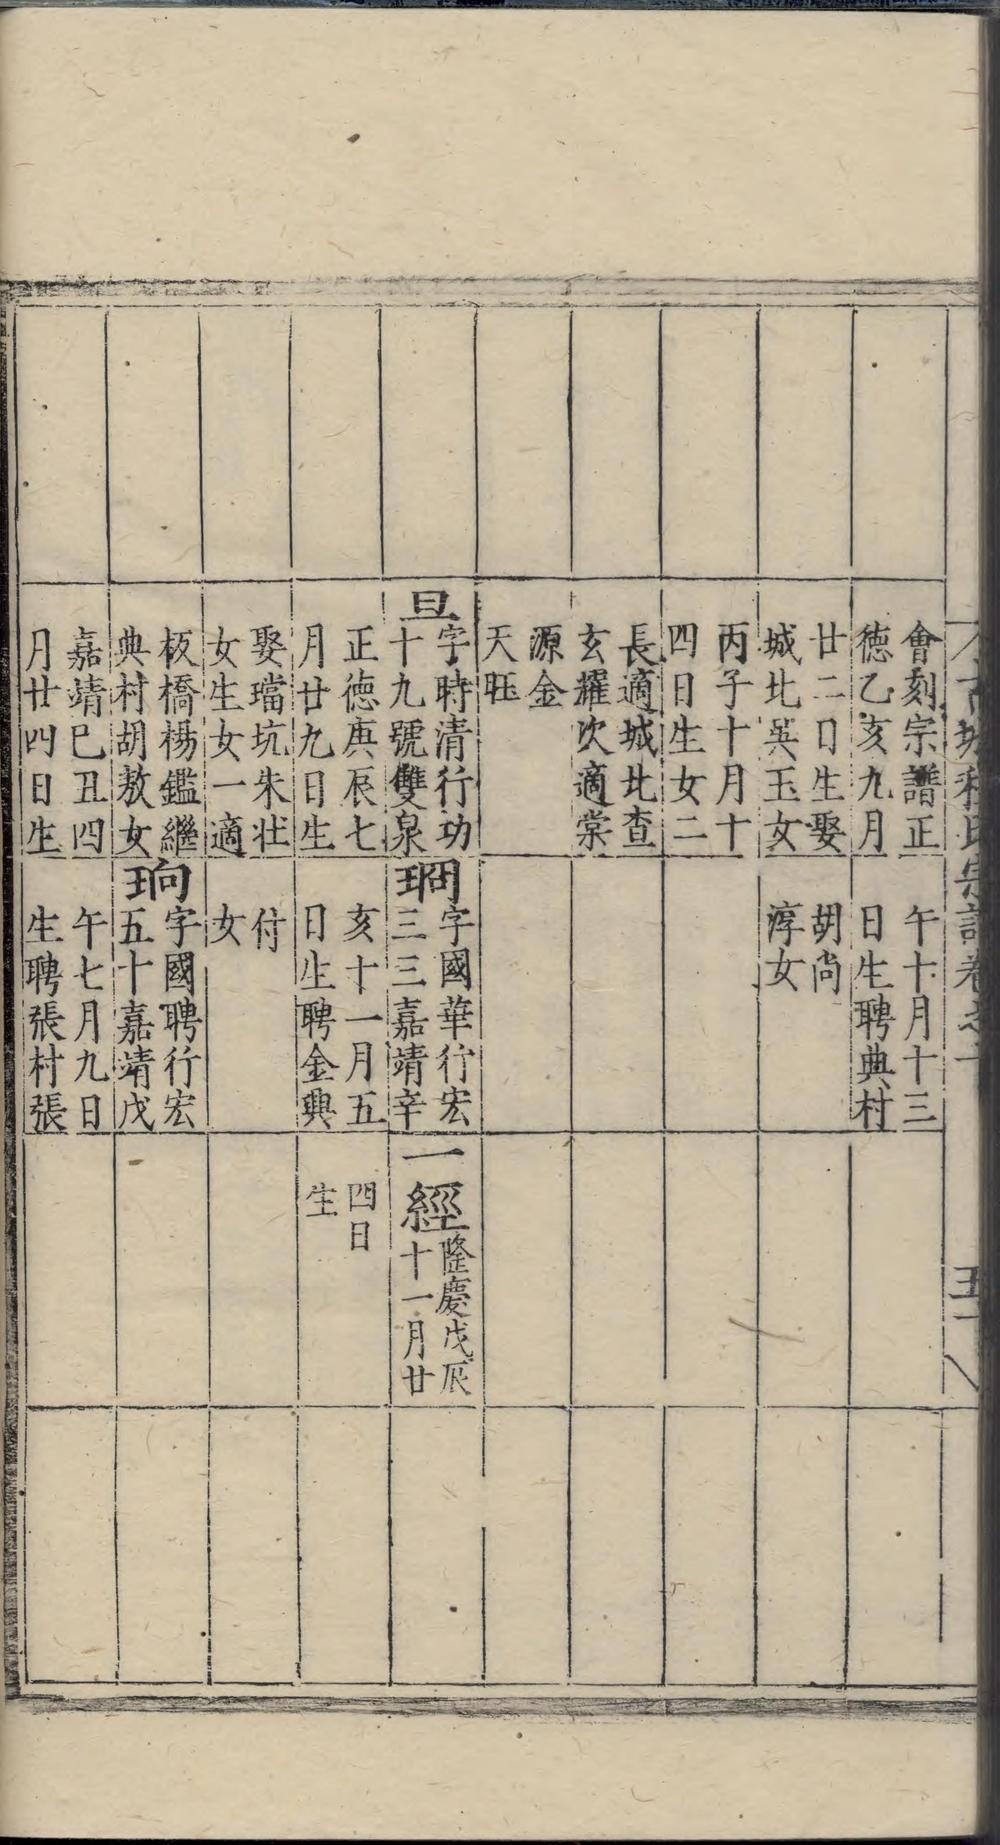 會刻宗譜正
德乙亥九月
廿二日生娶
城北吳玉女
丙子十月十
四日生女二
長適城北查
玄耀次適棠
源金
天旺
旦
字時清行功
十九號雙泉
正德庚辰七
月廿九日生
娶璫坑朱壯
女生女一適
板橋楊鑑繼
典村胡敖女
嘉靖己丑四
月廿四日生
午十月十三
日生聘典村
胡尚
淳女
琱
字國華行宏
三三嘉靖辛
亥十一月五
日生聘金興
付
女
珦
字國聘行宏
五十嘉靖戊
午七月九日
生聘張村張
一經
隆慶戊辰
十一月廿
四日
生